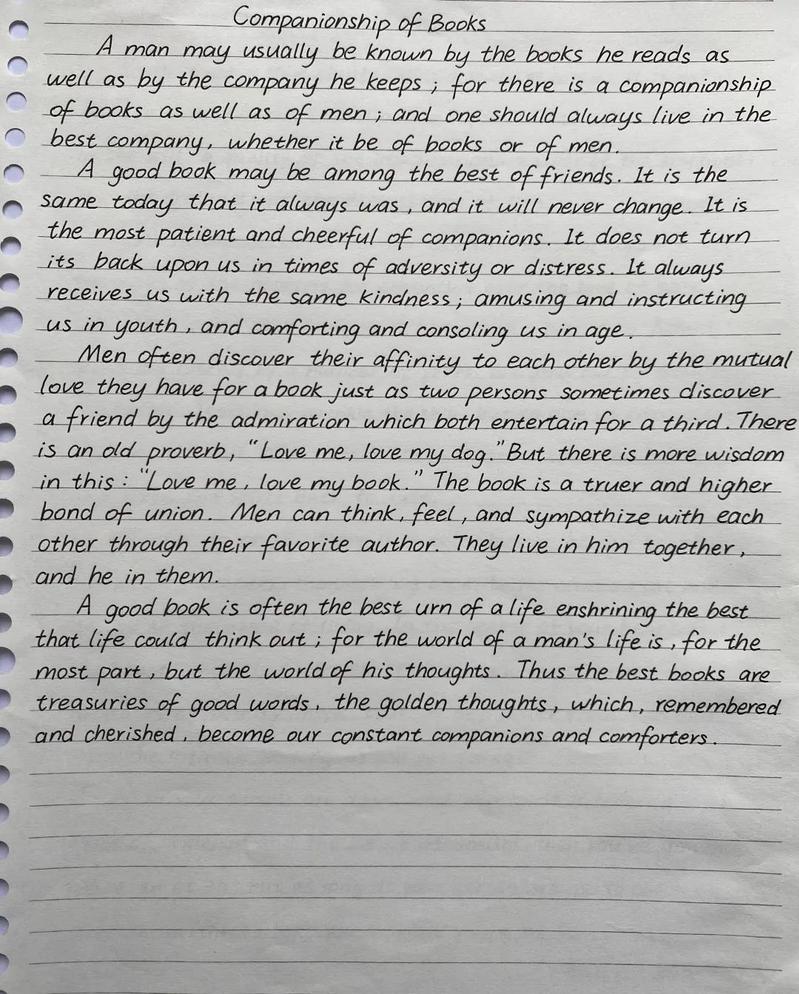 Companionship of Books
A man may usually be known by the books he reads as
well as by the company he keeps; for there is a companionship
of books as well as of men; and one should always live in the
best company, whether it be of books or of men.
A good book may be among the best of friends. It is the
same today that it always was, and it will never change. It is
the most patient and cheerful of companions. It does not turn
its back upon us in times of adversity or distress. It always
receives us with the same kindness; amusing and instructing
us in youth, and comforting and consoling us in age.
Men often discover their affinity to each other by the mutual
love they have for a book just as two persons sometimes discover
a friend by the admiration which both entertain for a third. There
is an old proverb, "Love me, love my dog." But there is more wisdom
in this: "Love me, love my book." The book is a truer and higher
bond of union. Men can think, feel, and sympathize with each
other through their favorite author. They live in him together,
and he in them.
A good book is often the best urn of a life enshrining the best
that life could think out; for the world of a man's life is, for the
most part, but the world of his thoughts. Thus the best books are
treasuries of good words, the golden thoughts, which, remembered
and cherished, become our constant companions and comforters.